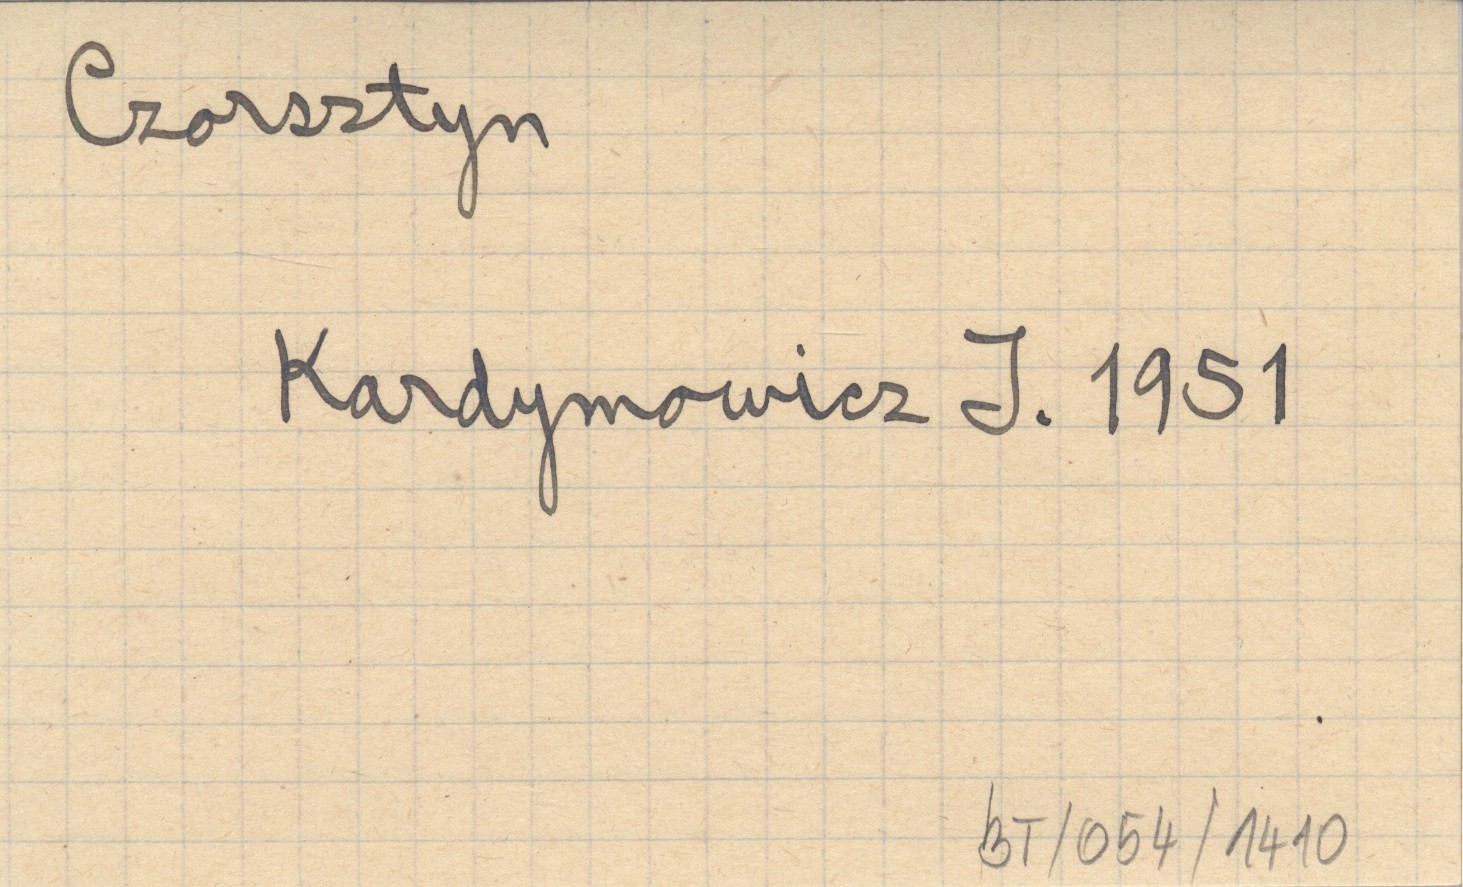 Czorsztyn
Kardymowicz J. 1951
BT/054/1410